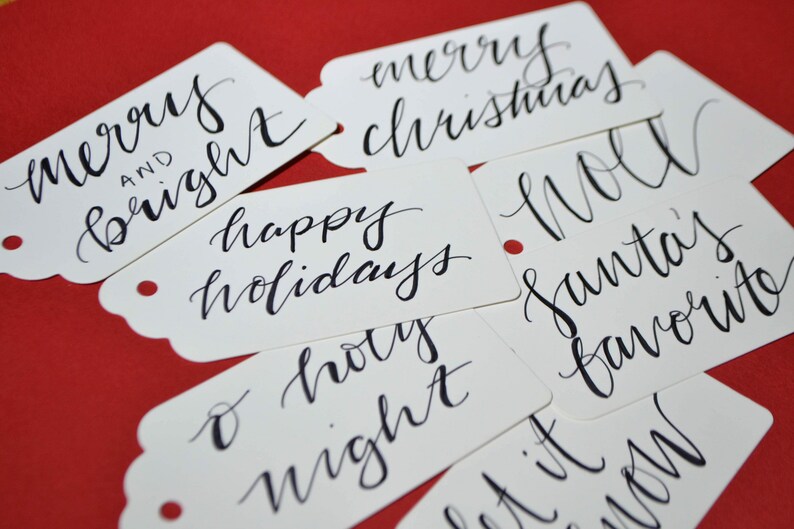 merry
and
bright
merry
christmas
noel
happy
holidays
santa's
favorite
o holy
night
let it
snow